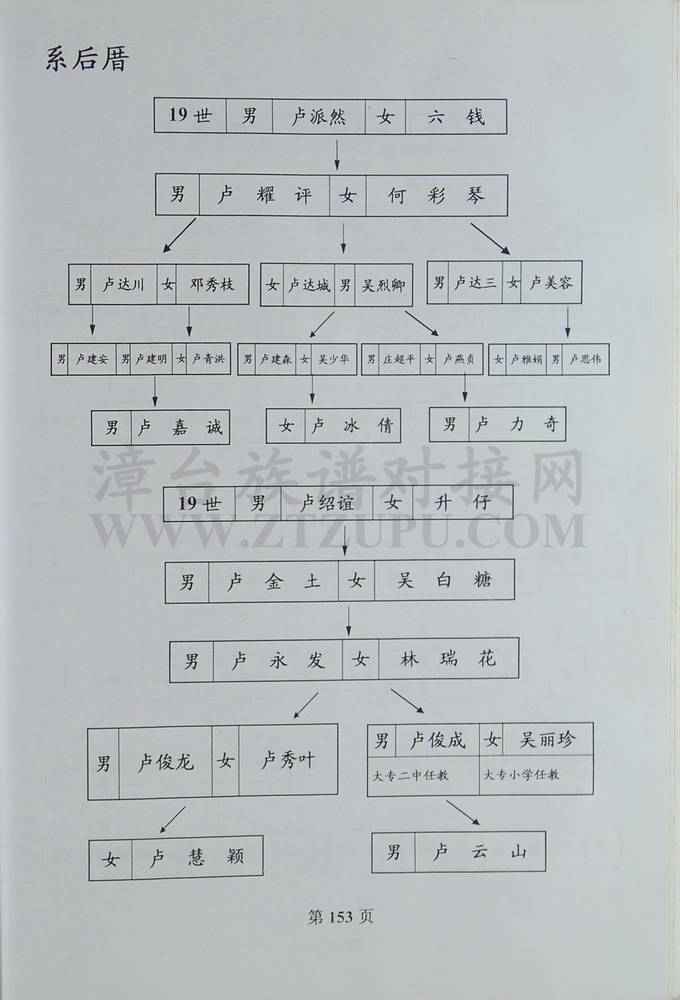 系后厝
19世 男 卢派然 女 六钱
男 卢耀评 女 何彩琴
男 卢达川 女 邓秀枝 女 卢达城 男 吴烈卿 男 卢达三 女 卢美容
男 卢建安 男 卢建明 女 卢青洪 男 卢建森 女 吴少华 男 庄超平 女 卢燕贞 女 卢雅娟 男 卢思伟
男 卢嘉诚 女 卢冰倩 男 卢力奇
漳台族谱对接网
19世 男 卢绍谊 女 升仔
WWW.ZTZUPU.COM
男 卢金土 女 吴白糖
男 卢永发 女 林瑞花
男 卢俊龙 女 卢秀叶 男 卢俊成 女 吴丽珍
大专二中任教 大专小学任教
女 卢慧颖 男 卢云山
第 153 页